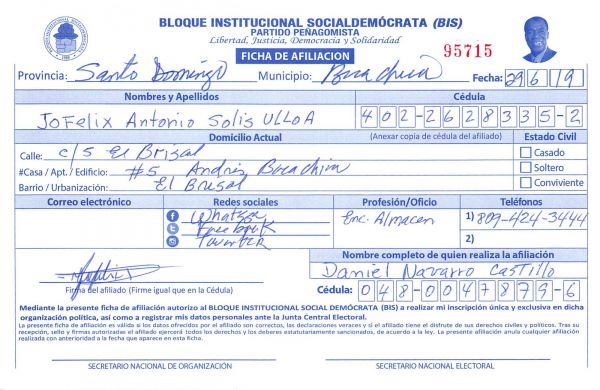 BLOQUE INSTITUCIONAL SOCIALDEMÓCRATA (BIS)
PARTIDO PEÑAGOMISTA
Libertad, Justicia, Democracia y Solidaridad
FICHA DE AFILIACION
95715
Provincia: Santo Domingo Municipio: Boca chica Fecha: 29/6/19
Nombres y Apellidos Cédula
JoFelix Antonio Solis ULLOA 402-2628335-2
Domicilio Actual (Anexar copia de cédula del afiliado) Estado Civil
Calle: c/5 El Brisal Casado
#Casa / Apt. / Edificio: #5 Andrés Boca chica Soltero
Barrio / Urbanización: El Brisal Conviviente
Correo electrónico Redes sociales Profesión/Oficio Teléfonos
Enc. Almacen 1) 809-424-3444
2)
Nombre completo de quien realiza la afiliación
Daniel Navarro Castillo
Firma del afiliado (Firme igual que en la Cédula) Cédula: 048-0047879-6
Mediante la presente ficha de afiliación autorizo al BLOQUE INSTITUCIONAL SOCIAL DEMÓCRATA (BIS) a realizar mi inscripción única y exclusiva en dicha
organización política, así como a registrar mis datos personales ante la Junta Central Electoral.
La presente ficha de afiliación es válida si los datos ofrecidos por el afiliado son correctos, las declaraciones veraces y si el afiliado tiene el disfrute de sus derechos civiles y políticos. Tras su
recepción, sello y firmas autorizadas el afiliado ejercerá todos los derechos y los deberes estatutariamente sancionados, de acuerdo a la ley. La presente afiliación anula cualquier afiliación
realizada con anterioridad a la fecha que aparece en esta ficha.
SECRETARIO NACIONAL DE ORGANIZACIÓN SECRETARIO NACIONAL ELECTORAL